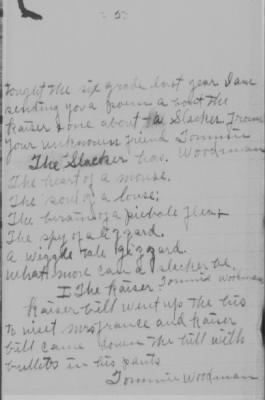 5
tought the six grade last year I am
sending you a poem about the
Kaiser & one about a Slacker. From
your unknown friend Tommie
Woodman
The Slacker has.
The heart of a mouse.
The soul of a louse;
The brains of a piebale flea,
The spy of a lizzard.
A wiggle tale gizzard
what more can a slacker be.
Tommie Woodman
I The Kaiser
Kaiser bill went up the hill
to visit mrs france and Kaiser
bill came down the hill with
bullets in his pants
Tommie Woodman